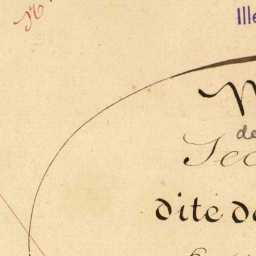 Ille
M
de
Sec
dite de